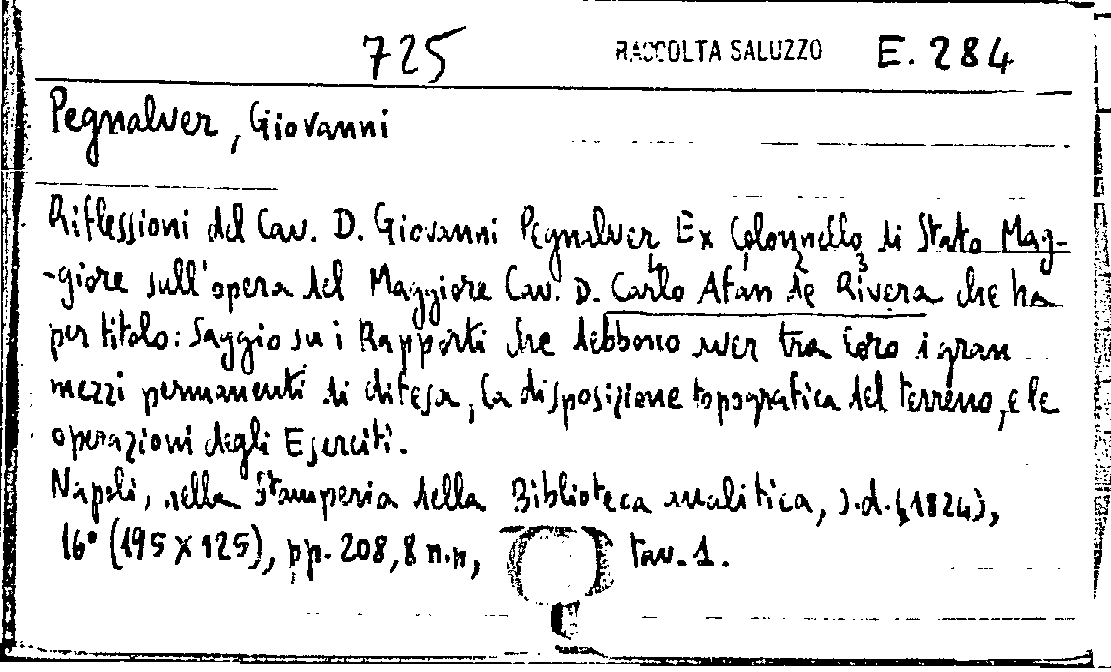 725 RACCOLTA SALUZZO E. 284
Pegnalver, Giovanni
Riflessioni del Cav. D. Giovanni Pegnalver Ex Colonnello di Stato Mag-
-giore sull'opera del Maggiore Cav. D. Carlo Afan de Rivera che ha
4 1 2 3
per titolo: Saggio su i Rapporti che debbono aver tra loro i gran
mezzi permanenti di difesa, la disposizione topografica del terreno, e le
operazioni degli Eserciti.
Napoli, nella Stamperia della Biblioteca analitica, s.d. (1824),
16° (195 x 125), pp. 208, 8 n.n, tav. 1.